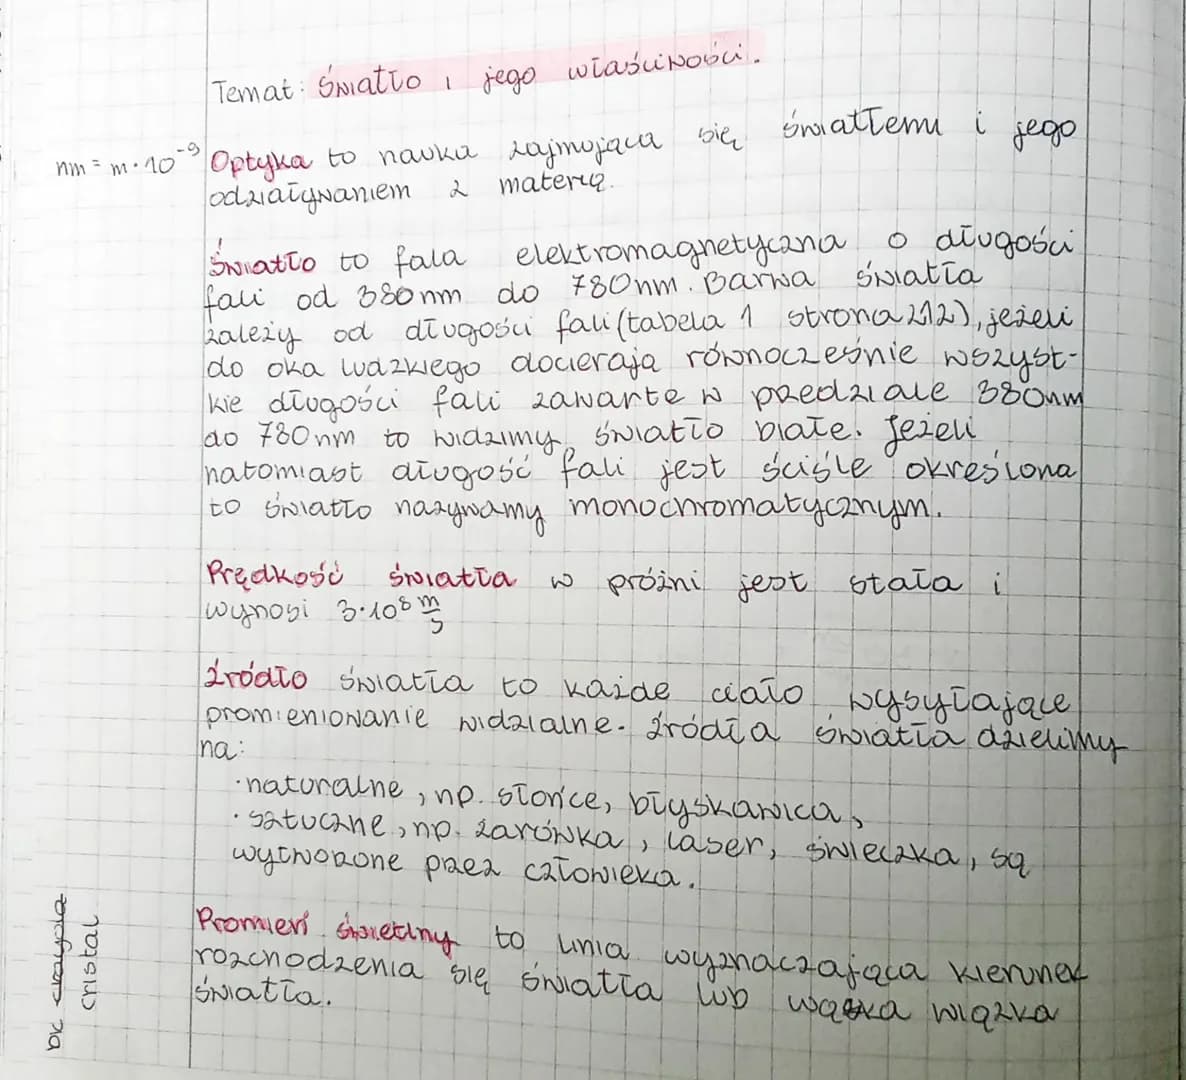 Temat: Światło i jego właściwości.
nm = m · 10⁻⁹
Optyka to nauka zajmująca się światłem i jego
odziaływaniem z materią.
Światło to fala elektromagnetyczna o długości
fali od 380 nm do 780 nm. Barwa światła
zależy od długości fali (tabela 1 strona 212), jeżeli
do oka ludzkiego docierają równocześnie wszyst-
kie długości fali zawarte w przedziale 380nm
do 780 nm to widzimy światło białe. Jeżeli
natomiast długość fali jest ściśle określona
to światło nazywamy monochromatycznym.
Prędkość światła w próżni jest stała i
wynosi 3·10⁸ m/s
Źródło światła to każde ciało wysyłające
promieniowanie widzialne. Źródła światła dzielimy
na:
· naturalne, np. słońce, błyskawica,
· sztuczne, np. żarówka, laser, świeczka, są
wytworzone przez człowieka.
Promień świetlny to linia wyznaczająca kierunek
rozchodzenia się światła lub wąska wiązka
światła.
cristal